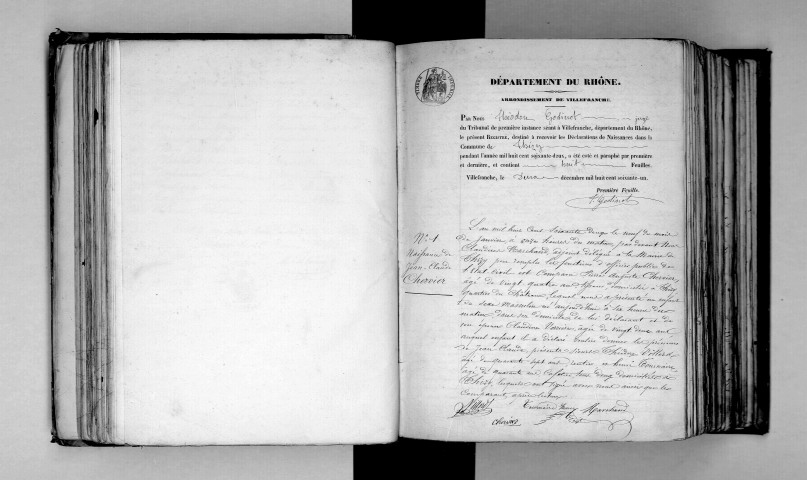 DÉPARTEMENT DU RHÔNE.
ARRONDISSEMENT DE VILLEFRANCHE.
Par Nous Godinot juge
du Tribunal de première instance séant à Villefranche, département du Rhône,
le présent Registre, destiné à recevoir les Déclarations de Naissances dans la
Commune de Thizy
pendant l'année mil huit cent soixante-deux, a été coté et paraphé par première
et dernière, et contient huit Feuilles.
Villefranche, le décembre mil huit cent soixante-un.
Première Feuille.
Godinot
N° 1
Naissance de
Jean Claude
Chervier
L'an mil huit cent soixante deux le neuf du mois
de janvier à onze heures du matin, par devant Nous
Claudine Marchand, adjoint délégué à la Mairie de
Thizy pour remplir les fonctions d'officier public de
l'état civil est comparu Pierre Auguste Chervier,
âgé de vingt quatre ans, domicilié à Thizy
quartier du Château lequel nous a présenté un enfant
du sexe Masculin né aujourd'hui à six heures du
matin, dans son domicile, de lui déclarant et de
son épouse Claudine, âgée de vingt deux ans
auquel enfant il a déclaré vouloir donner les prénoms
de Jean Claude, présents
âgé de quarante sept ans
âgé de quarante ans, tous deux domiciliés à
Thizy, lesquels ont signé avec nous ainsi que le
comparant, après lecture
Marchand
Chervier